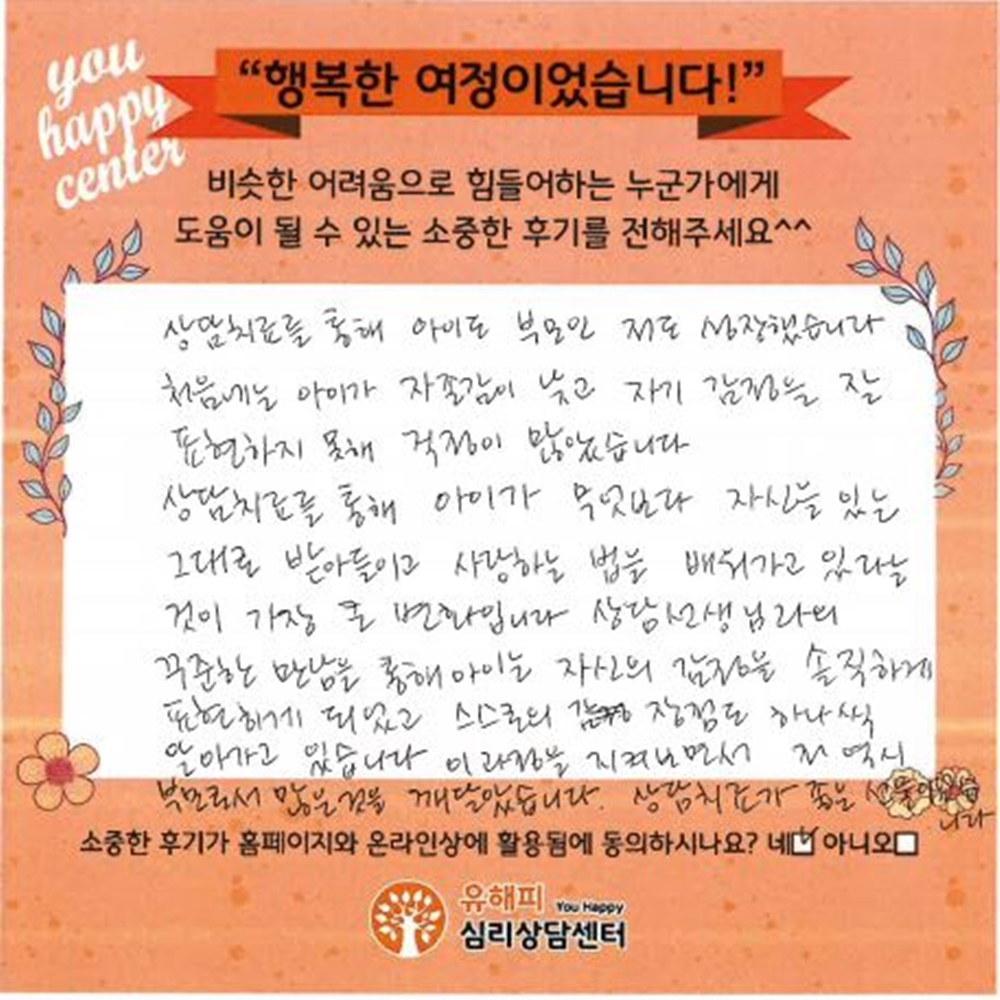 you
happy
center
“행복한 여정이었습니다!”
비슷한 어려움으로 힘들어하는 누군가에게
도움이 될 수 있는 소중한 후기를 전해주세요^^
상담치료를 통해 아이도 부모인 저도 성장했습니다
처음에는 아이가 자존감이 낮고 자기 감정을 잘
표현하지 못해 걱정이 많았습니다
상담치료를 통해 아이가 무엇보다 자신을 있는
그대로 받아들이고 사랑하는 법을 배워가고 있다는
것이 가장 큰 변화입니다 상담선생님과의
꾸준한 만남을 통해 아이는 자신의 감정을 솔직하게
표현하게 되었고 스스로의 장점도 하나씩
알아가고 있습니다 이 과정을 지켜보면서 저 역시
부모로서 많은것을 깨달았습니다. 상담치료가 좋은 선물이었습
니다
소중한 후기가 홈페이지와 온라인상에 활용됨에 동의하시나요? 네☑ 아니오☐
유해피 You Happy
심리상담센터